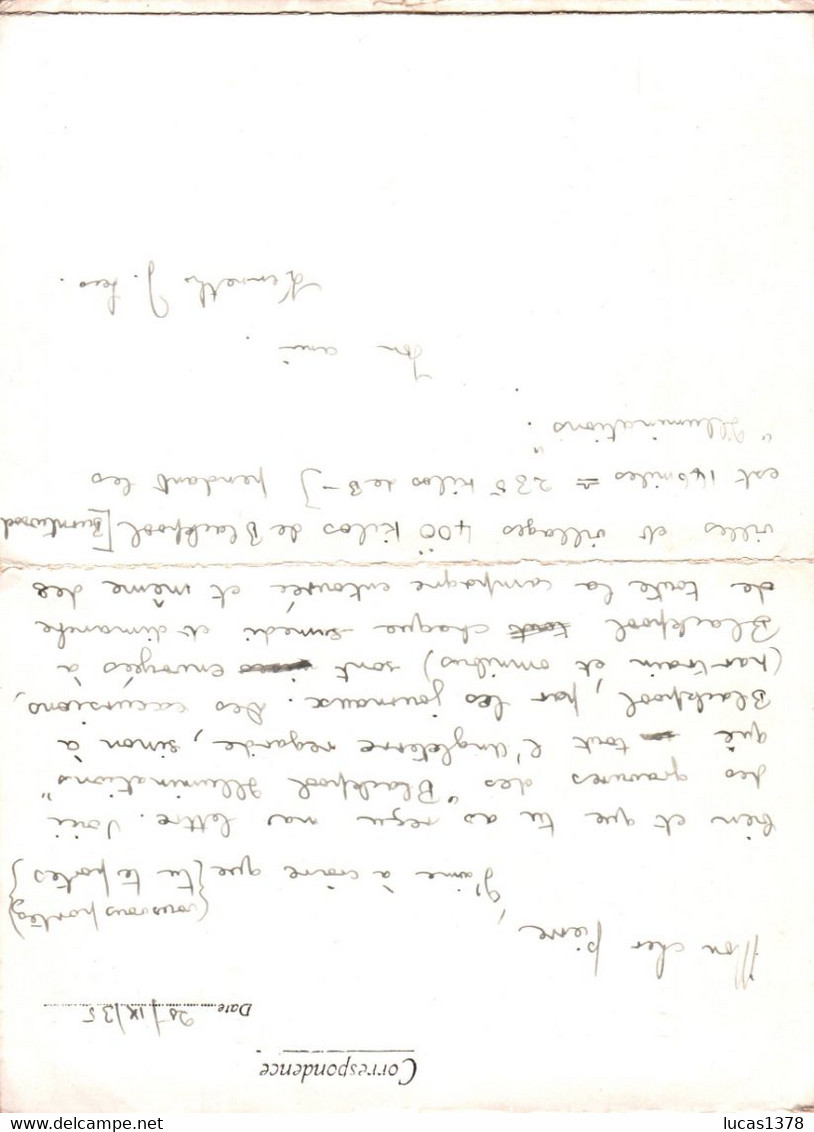 Correspondence
Date 20/IX/35
Mon cher Pierre,
(vous vous portez)
J'aime à croire que {tu te portes}
bien et que tu as reçu ma lettre. Voici
des gravures des "Blackpool Illuminations"
que tout l'Angleterre regarde, sinon à
Blackpool, par les journaux. Des excursions,
(par train et omnibus) sont envoyés à
Blackpool tout chaque samedi et dimanche
de toute la campagne entourée et même des
villes et villages 400 kilos de Blackpool [Burntwood
est 146 miles = 235 kilos de B-] pendant les
"Illuminations".
Ton ami.
Kenneth J. Lees.
lucas1378